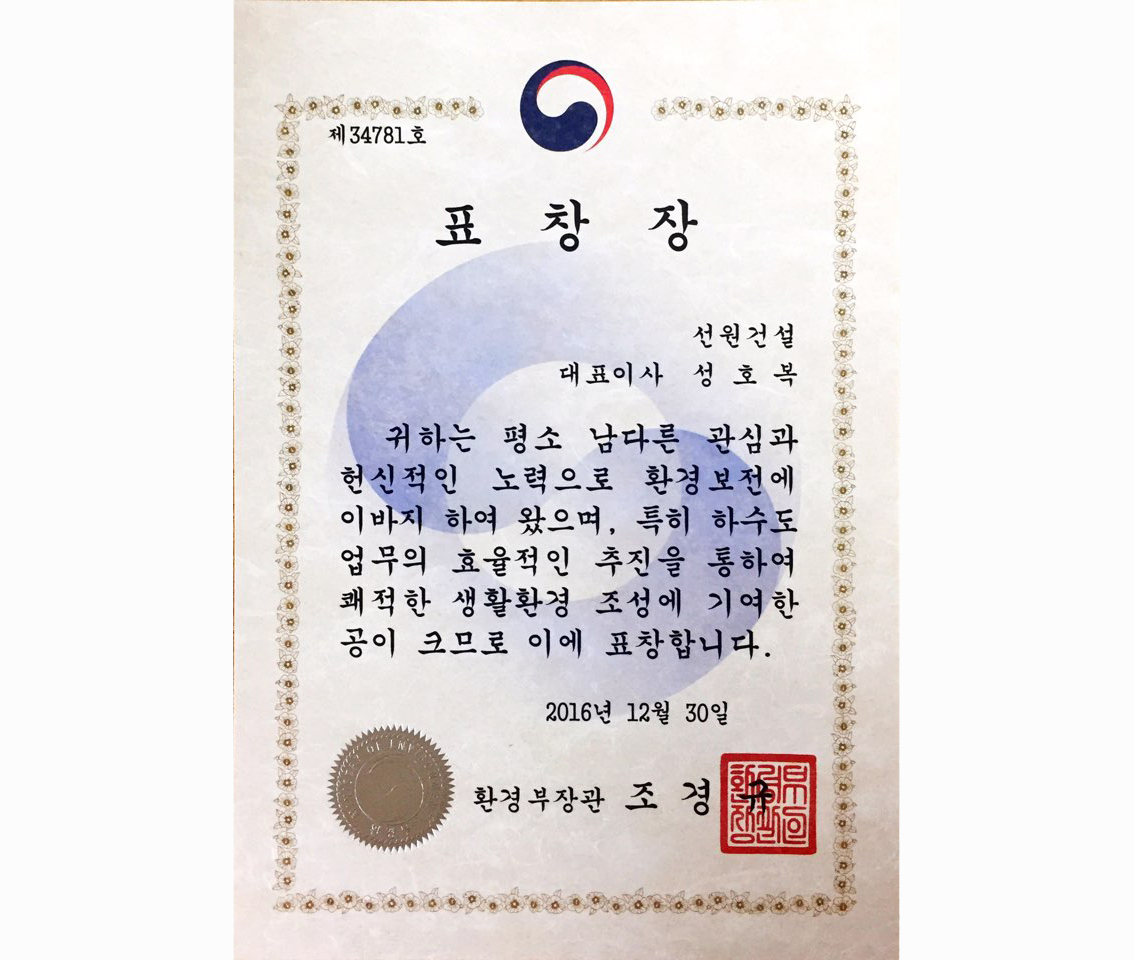 제34781호
표 창 장
선원건설
대표이사 성 호 복
귀하는 평소 남다른 관심과
헌신적인 노력으로 환경보전에
이바지 하여 왔으며, 특히 하수도
업무의 효율적인 추진을 통하여
쾌적한 생활환경 조성에 기여한
공이 크므로 이에 표창합니다.
2016년 12월 30일
환경부장관 조 경 규